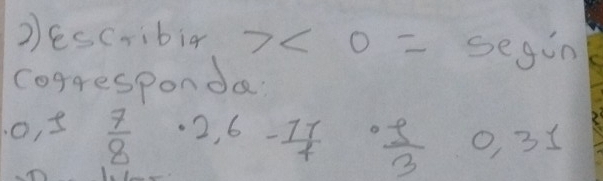 2) Escribir > < o = según
corresponda:
.0,1 7/8 •2,6 - 11/4 • 1/3 0,31